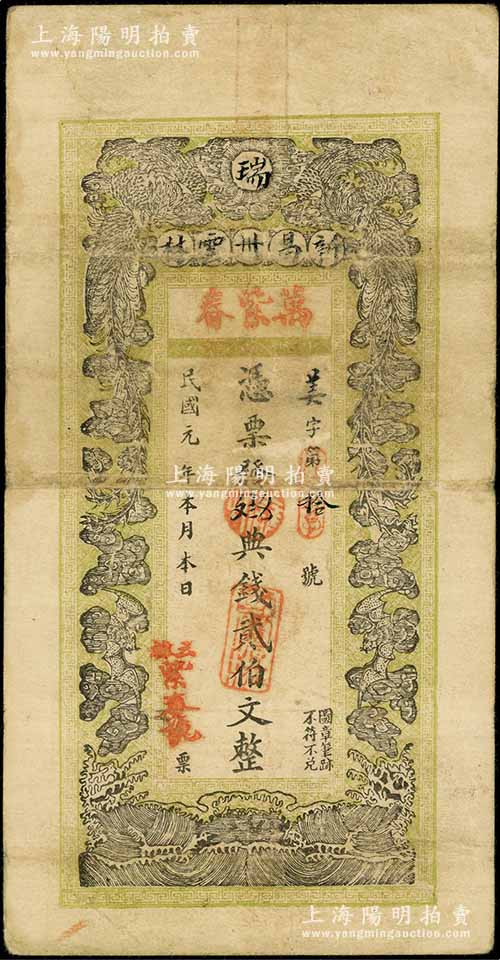 上海陽明拍賣
www.yangmingauction.com
瑞
新昌州雲村
萬紫春
美字第拾號
憑票發
典錢貳伯文整
民國元年本月本日
圖章筆跡
不符不兌
票
上海陽明拍賣
www.yangmingauction.com
上海陽明拍賣
www.yangmingauction.com